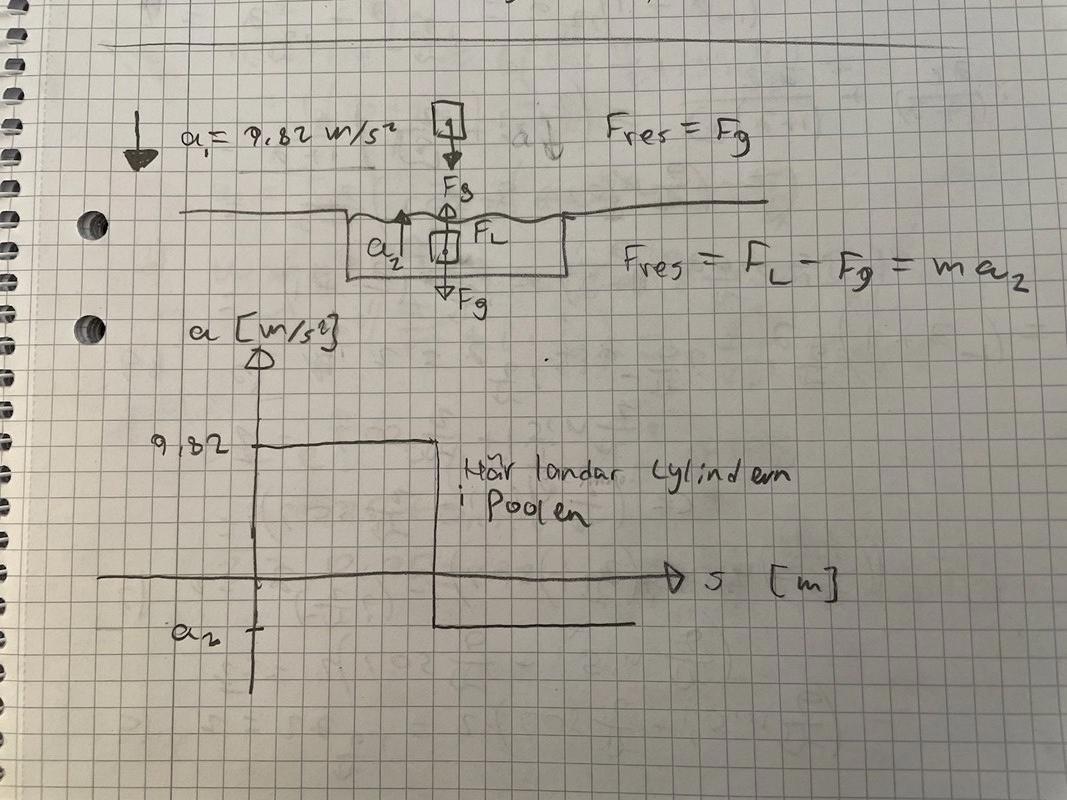 a₁ = 9,82 m/s²
a ↓
Fres = Fg
Fg
a₂
FL
Fres = FL - Fg = ma₂
Fg
a [m/s²]
9,82
Här landar cylindern
i poolen
s [m]
a₂